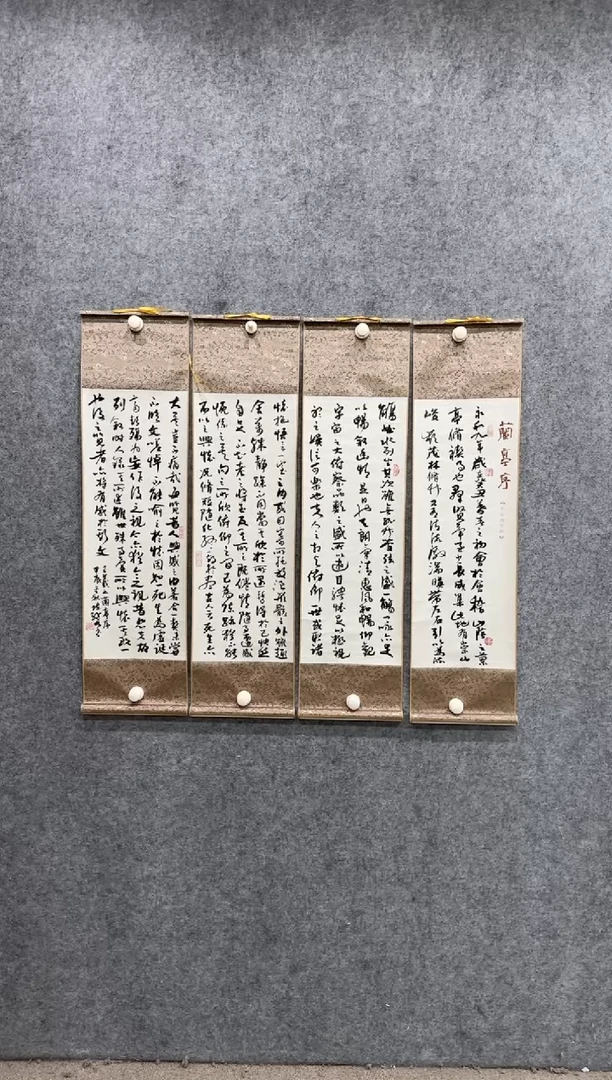 蘭亭序
永和九年歲在癸丑暮春之初會於會稽山陰之
亭脩禊事也群賢畢至少長咸集此地有崇山
峻嶺茂林脩竹又有清流激湍暎帶左右引以為流
觴曲水列坐其次雖無絲竹管弦之盛一觴一詠亦足
以暢敘幽情是日也天朗氣清惠風和暢仰觀
宇宙之大俯察品類之盛所以遊目騁懷足以極視
聽之娛信可樂也夫人之相與俯仰一世或取諸
懷抱悟言一室之內或因寄所託放浪形骸之外雖趣
舍萬殊靜躁不同當其欣於所遇暫得於己快然
自足不知老之將至及其所之既倦情隨事遷感
慨係之矣向之所欣俯仰之間已為陳跡猶不能
不以之興懷況脩短隨化終期於盡古人云死生亦
大矣豈不痛哉每覽昔人興感之由若合一契未嘗
不臨文嗟悼不能喻之於懷固知死生為虛誕
齊彭殤為妄作後之視今亦猶今之視昔悲夫故
列敘時人錄其所述雖世殊事異所以興懷其致一
也後之覽者亦將有感於斯文
王羲之蘭亭序